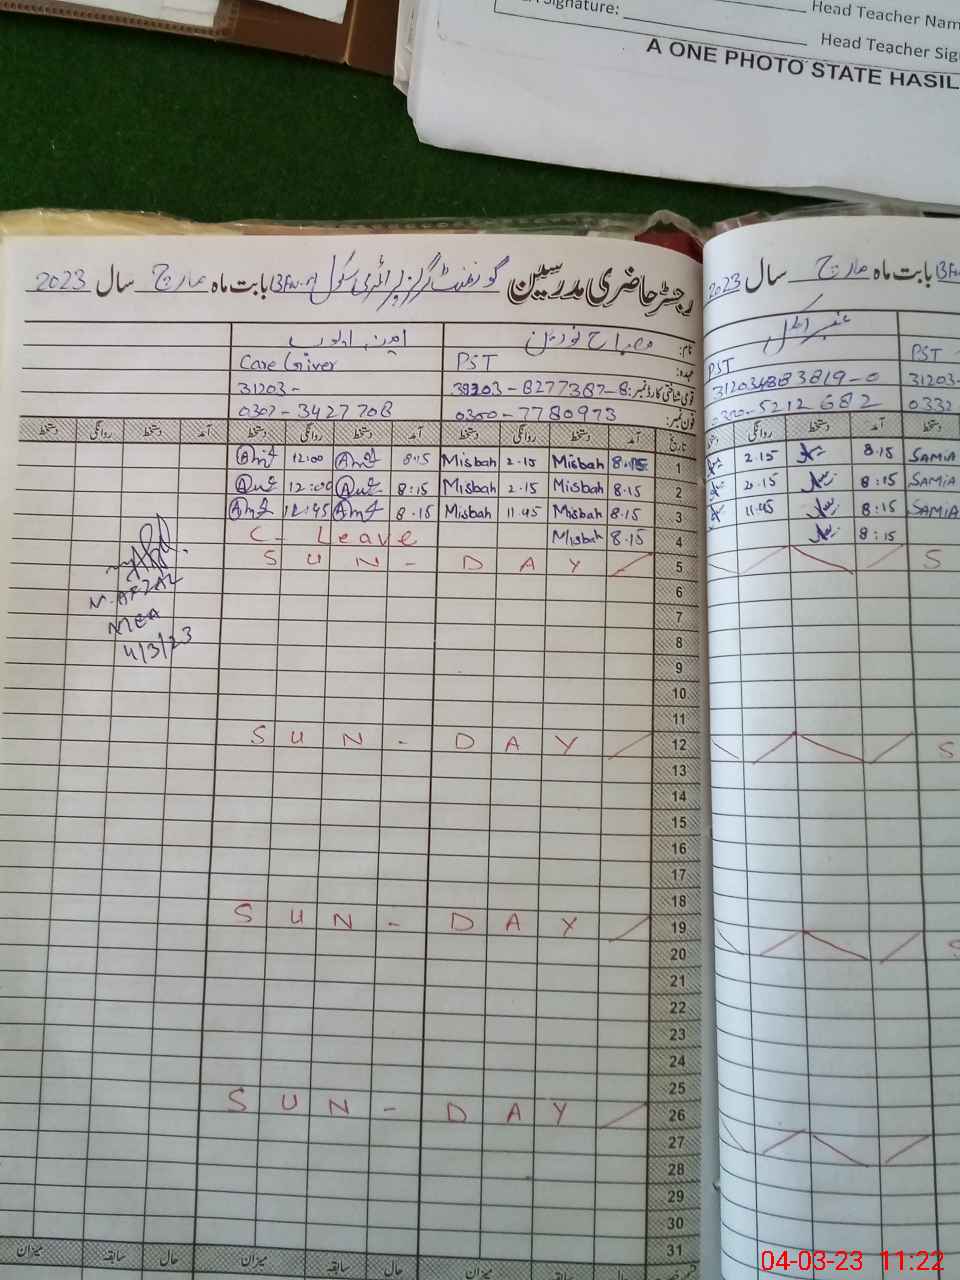 Signature:
Head Teacher Nam
Head Teacher Sig
A ONE PHOTO STATE HASIL
رجسٹر حاضری مدرسین گورنمنٹ گرلز پرائمری سکول بابت ماہ مارچ سال 2023
نام: مصباح نورین امینہ ایوب
عہدہ: PST Care Giver
قومی شناختی کارڈ نمبر: 8277387-8 31203-
فون نمبر: 0300-7780973 0307-3427708
تاریخ آمد دستخط روانگی دستخط آمد دستخط روانگی دستخط آمد دستخط روانگی دستخط
1 8.15 Misbah 2.15 Misbah 8.15 12:00
2 8.15 Misbah 2.15 Misbah 8:15 12:00
3 8.15 Misbah 11.45 Misbah 8.15 12:45
4 8.15 Misbah C- Leave
5 SUN-DAY
6
7
8
9
10
11
12 SUN-DAY
13
14
15
16
17
18
19 SUN-DAY
20
21
22
23
24
25
26 SUN-DAY
27
28
29
30
31
میزان سابقہ حال میزان سابقہ حال میزان
M. AFZAL
MEA
4/3/23
بابت ماہ مارچ سال 2023
PST PST
3819-0 31203-
0300-5212682 0332
آمد دستخط روانگی
SAMIA 8.15 2.15
SAMIA 8:15 2.15
SAMIA 8:15 11.45
8:15
S
S
04-03-23 11:22